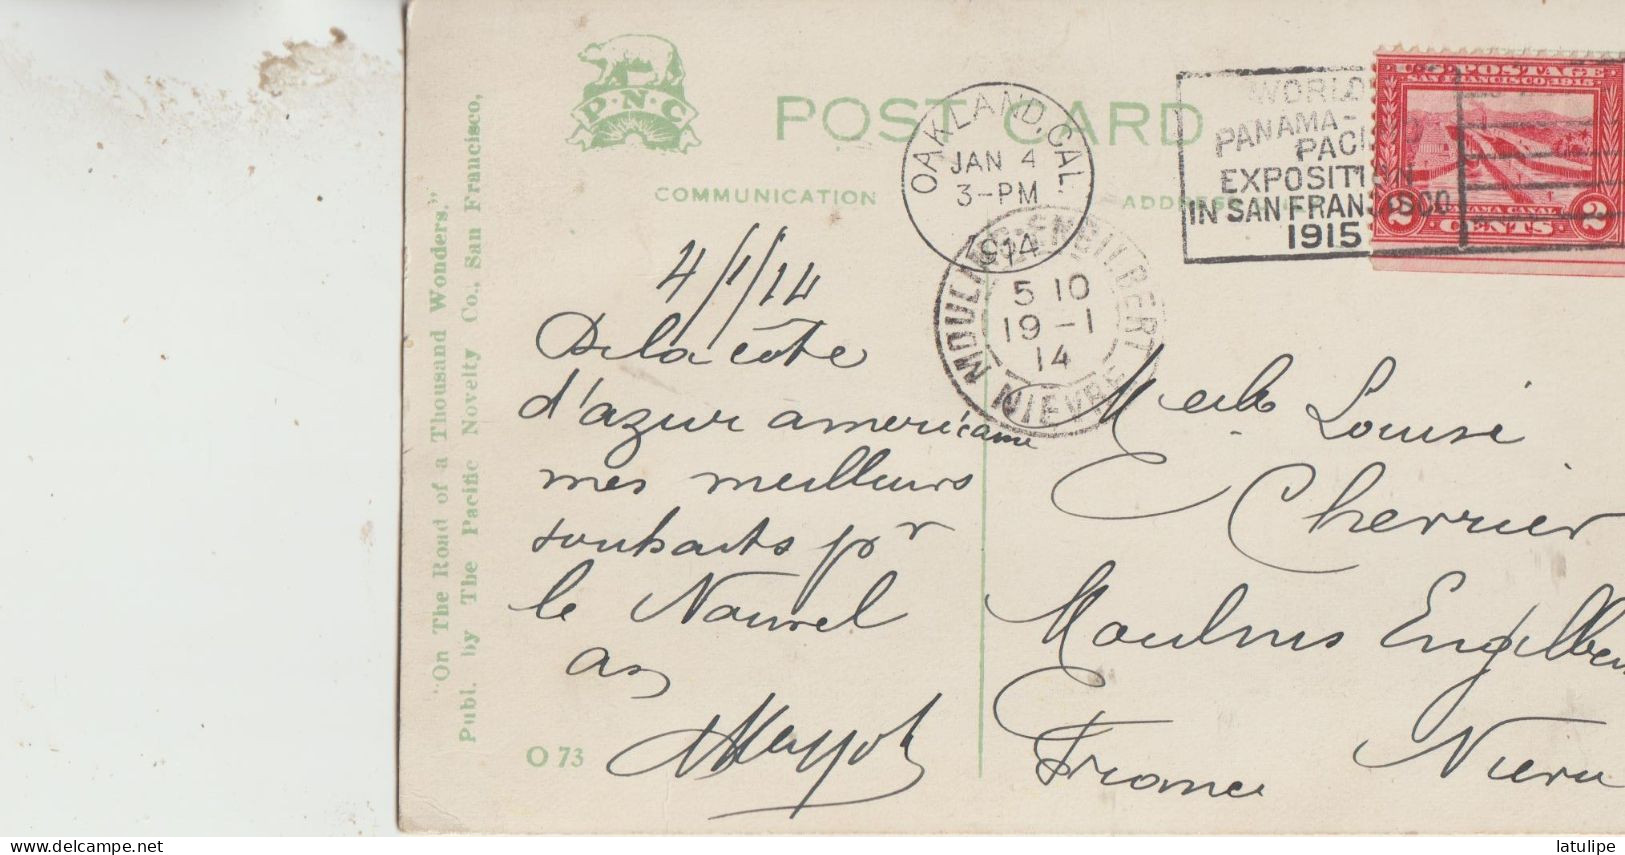 P·N·C
POST CARD
COMMUNICATION
ADDRESS
"On The Road of a Thousand Wonders."
Publ. by The Pacific Novelty Co., San Francisco,
OAKLAND, CAL.
JAN 4
3-PM
1914
WORLD
PANAMA-
PACIFIC
EXPOSITION
IN SAN FRANCISCO
1915
U.S. POSTAGE
SAN FRANCISCO 1915
PANAMA CANAL
2 CENTS 2
MOULINS-ENGILBERT
5 10
19 -1
14
NIEVRE
4/1/14
De la côte
d'azur américaine
mes meilleurs
souhaits pr
le Nouvel
an
Melle Louise
Cherrier
Moulins Engilbert
France Nièvre
O 73
latulipe